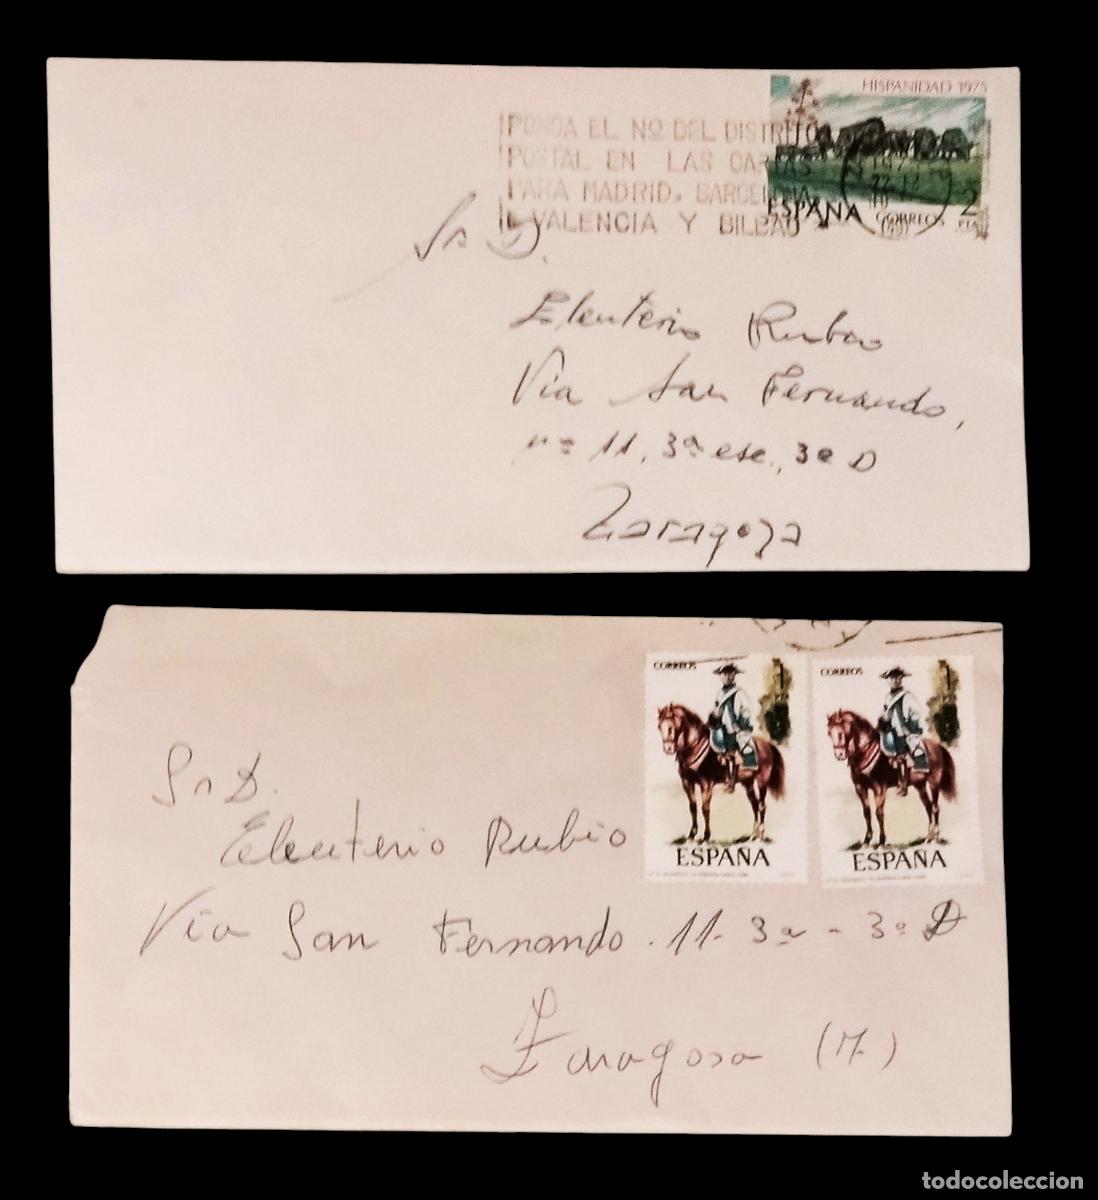 HISPANIDAD 1975
PONGA EL Nº DEL DISTRITO
POSTAL EN LAS CARTAS
PARA MADRID, BARCELONA,
VALENCIA Y BILBAO
ESPAÑA CORREOS 2 PTA
Sr D.
Eleuterio Rubio
Via San Fernando,
nº 11, 3ª esc., 3º D
Zaragoza
CORREOS 1
CORREOS 1
ESPAÑA
ESPAÑA
Sr D.
Eleuterio Rubio
Via San Fernando. 11. 3ª - 3º D
Zaragosa (7)
todocoleccion